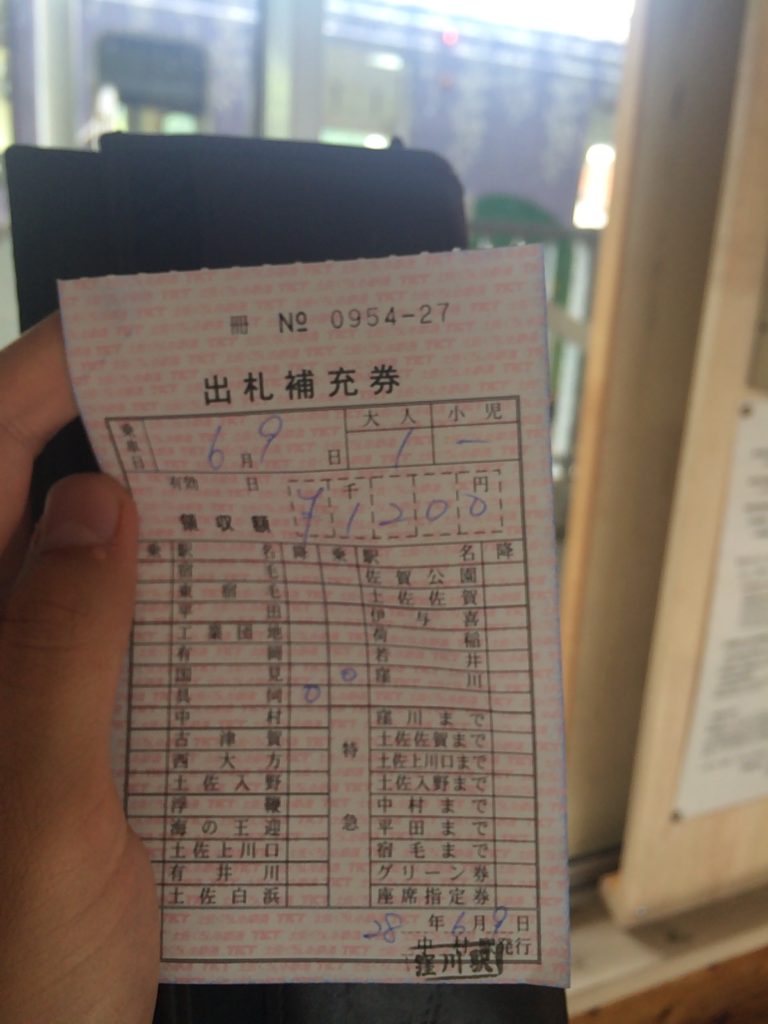 冊 № 0954-27
出札補充券
乗車日 6月9日 大人 小児
1 ー
有効 日 千 円
領収額 ¥1200
乗 駅名 降 乗 駅名 降
宿毛 佐賀公園
東宿毛 土佐佐賀
平田 伊与喜
工業団地 荷稲
有岡 若井
国見 ○ 窪川
具同 ○
中村 窪川まで
古津賀 特 土佐佐賀まで
西大方 土佐上川口まで
土佐入野 土佐入野まで
浮鞭 急 中村まで
海の王迎 平田まで
土佐上川口 宿毛まで
有井川 グリーン券
土佐白浜 座席指定券
28年6月9日
中村駅発行
窪川駅